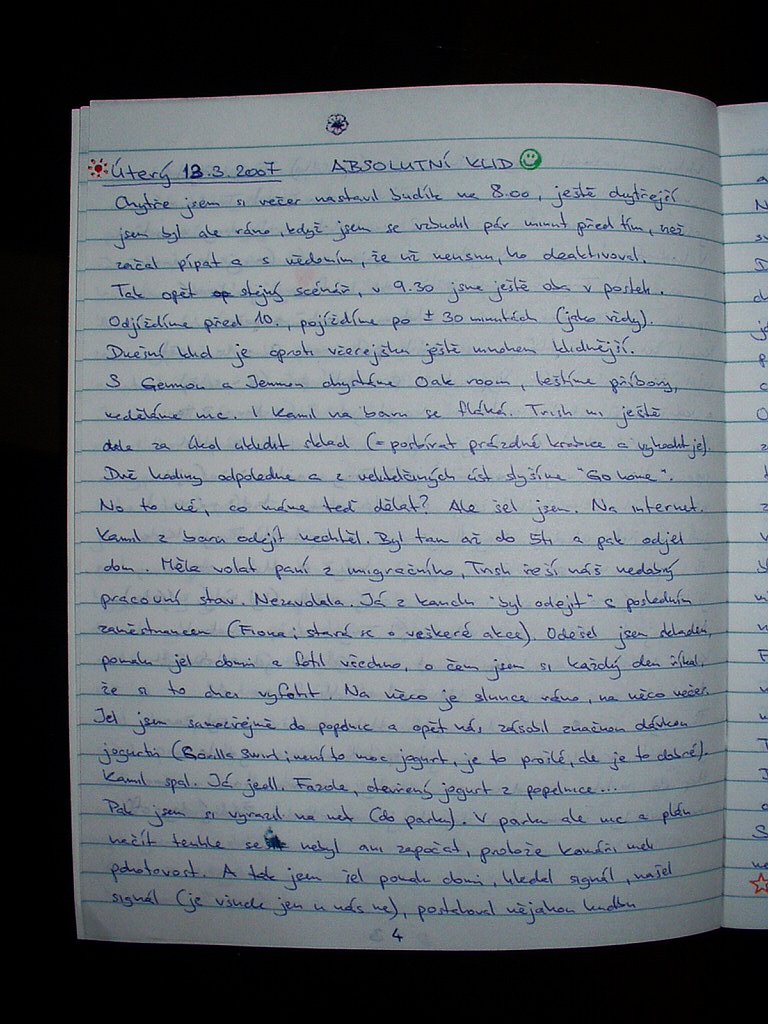 Úterý 13.3.2007 ABSOLUTNÍ KLID
Chytře jsem si večer nastavil budík na 8.00, ještě chytřejší
jsem byl ale ráno, když jsem se vzbudil pár minut před tím, než
začal pípat a s vědomím, že už neusnu, ho deaktivoval.
Tak opět stejný scénář, v 9.30 jsme ještě oba v posteli.
Odjíždíme před 10., pojíždíme po ± 30 minutách (jako vždy).
Dnešní klid je oproti včerejšku ještě mnohem klidnější.
S a chystáme Oak room, leštíme příbory,
neděláme nic. I Kamil na baru se fláká. Trish mi ještě
dala za úkol uklidit sklad (= posbírat prázdné krabice a vyhodit je).
Dvě hodiny odpoledne a z úst slyšíme "Go home".
No to né, co máme teď dělat? Ale šel jsem. Na internet.
Kamil z baru odejít nechtěl. Byl tam až do 5ti a pak odjel
dom. Měla volat paní z imigračního, Trish řeší náš nedobrý
pracovní stav. Nezavolala. Já z kanclu "byl odejit" s posledním
zaměstnancem (Fiona; stará se o veškeré akce). Odešel jsem
pomalu jel domů a fotil všechno, o čem jsem si každý den říkal,
že si to chci vyfotit. Na něco je slunce ráno, na něco večer.
Jel jsem samozřejmě do popelnic a opět nás zásobil značnou dávkou
jogurtů (Gorilla Swirl; není to moc jogurt, je to prošlé, ale je to dobré).
Kamil spal. Já jedl. Fazole, otevřený jogurt z popelnice...
Pak jsem si vyrazil na net (do parku). V parku ale nic a plán
načít tenhle se nebyl ani započat, protože komáři měli
pohotovost. A tak jsem šel pomalu domů, hledal signál, našel
signál (je všude jen u nás ne), postahoval nějakou hudbu
4